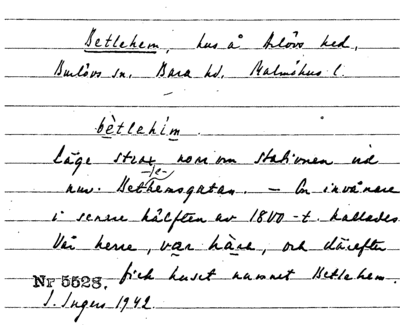 Betlehem, hus å Arlövs hed,
Burlövs sn. Bara hd. Malmöhus l.
bètlehim.
läge strax norr om stationen vid
-le-
nuv. Bethemsgatan. – En invånare
i senare hälften av 1800-t. kallades
Vår herre, vạr hàra, och därefter
fick huset namnet Betlehem.
Nr 5528.
I. Ingers 1942.